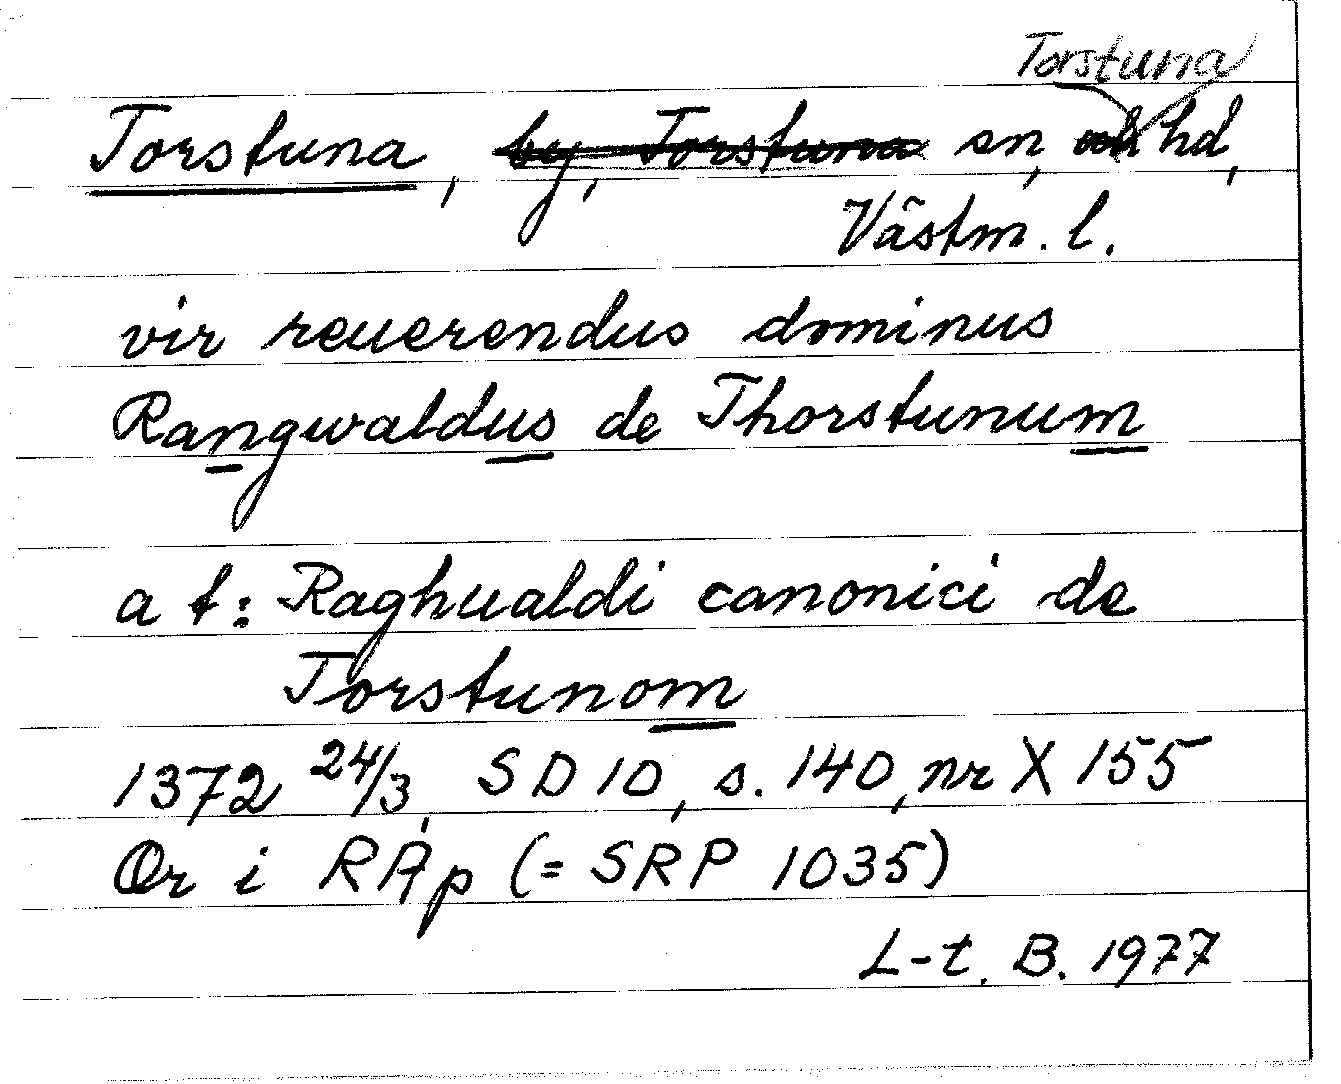 Torstuna
Torstuna, by, Torstuna sn, och hd,
Västm. l.
vir reuerendus dominus
Rangwaldus de Thorstunum
a t: Raghualdi canonici de
Torstunom
1372 24/3, SD 10, s. 140, nr X 155
Or i RAp (= SRP 1035)
L-t. B. 1977